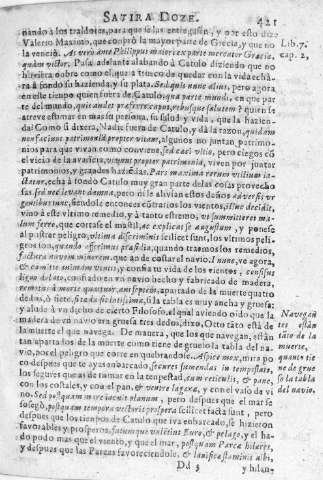 SATIRA DOZE. 421
nando à los traidores, para que se las entregassen, y por esto dize
Valerio Maximo, que comprò la mayor parte de Grecia, y que no
la venciò. At vero ante Philippus maior ex parte mercator Græciæ,
quàm victor. Passa adelante alabando à Catulo diziendo que no
huviera otro como el que a trueco de quedar con la vida echà-
ra à fondo su hazienda, y su plata. Sed quis nunc alius, pero agora
en este tiempo quien fuera de Catulo, qua parte mundi, en que par
te del mundo, quis audet præferre caput, rebusque salutem? quien se
atreve estimar en mas su persona, su salud y vida, que la hazien-
da? Como si dixera, Nadie fuera de Catulo, y dà la razon, quidam
non faciunt patrimonia propter vitam, algunos no juntan patrimo-
nios para que vivan como conviene, sed cæci vitio, pero ciegos cõ
el vicio de la avaricia, vivunt propter patrimonia, viven por juntar
patrimonios, y grandes haziendas. Pars maxima rerum utilium ia-
ctatur, echà à fondo Catulo muy gran parte de las cosas provecho
sas. sed nec levant damna, pero ni le alivian estos daños adversis ur
gentibus tunc, siendole entonces cõtrarios los vientos,
vino à este ultimo remedio, y à tanto estremo, ut summitteret ma-
lum ferro, que cortasse el mastil, ac explicat se angustum, y ponese
al postrer peligro, ultima discriminis scilicet sunt, los ultimos peli-
gros son, quando afferimus præsidia, quando traemos los remedios,
factura navem minorem, que an de costar el navio. I nunc, ve agora,
& committe animam ventis, y confia tu vida de los vientos, confisus
ligno dolato, confiado en un navio hecho y fabricado de madera,
remotus à morte quatuor, aut septem, apartado de la muerte quatro
dedos, ò siete, si tæda sit latissima, si la tabla es muy ancha y gruesa:
y alude à un dicho de cierto Filosofo, el qual aviendo oido que la
madera de un navio era gruesa tres dedos, dixo, Otto tãto està de
la muerte el que navega. De manera, que los que navegan, estàn
tan apartados de la muerte como tiene de grueso la tabla del na-
vio, pues el peligro que corre en quebrandose. Aspice mox, mira po
co despues que te ayas embarcado, secures sumendas in tempestate,
los segures que as de tomar en la tempestad, cum reticulis, & pane,
con los costales, y con el pan, & ventre lagenæ, y con el vaso de vi
no. Sed postquam mare iacuit planum, pero despues que el mar se
sosegò, postquam tempora vectoris prospera scilicet facta sunt, pero
despues que los tiempos de Catulo que iva embarcado, se hizieron
favorables y prosperos, fatumque validius Euro, & pelago, y el ha-
do pudo mas que el viento, y que el mar, postquam Parcæ hilares,
y despues que las Parcas favoreciendole, & lanificæ staminis albi,
Dd 3 y hilan-
Lib. 7.
cap. 2,
Navegan
tes estàn
tãto de la
muerte,
quanto tie
ne de grue
so la tabla
del navio.